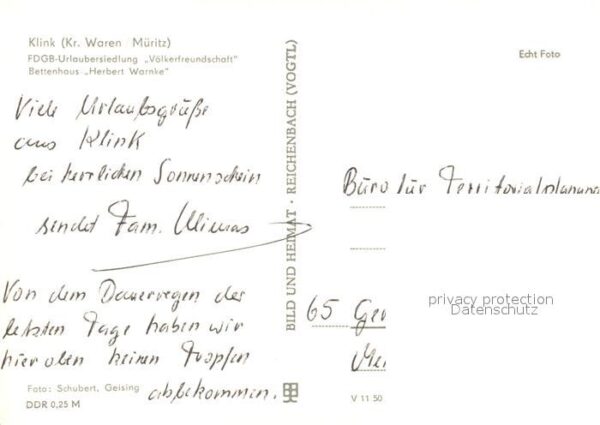 Klink (Kr. Waren Müritz)
FDGB-Urlaubersiedlung „Völkerfreundschaft"
Bettenhaus „Herbert Warnke"
Echt Foto
Viele Urlaubsgrüße
aus Klink
bei herrlichen Sonnenschein
sendet Fam.
Von dem Dauerregen der
letzten Tage haben wir
hier oben keinen Tropfen
abbekommen.
Foto: Schubert, Geising
DDR 0,25 M
BILD UND HEIMAT · REICHENBACH (VOGTL)
Büro für Territorialplanung
65 Ger
privacy protection
Datenschutz
V 11 50